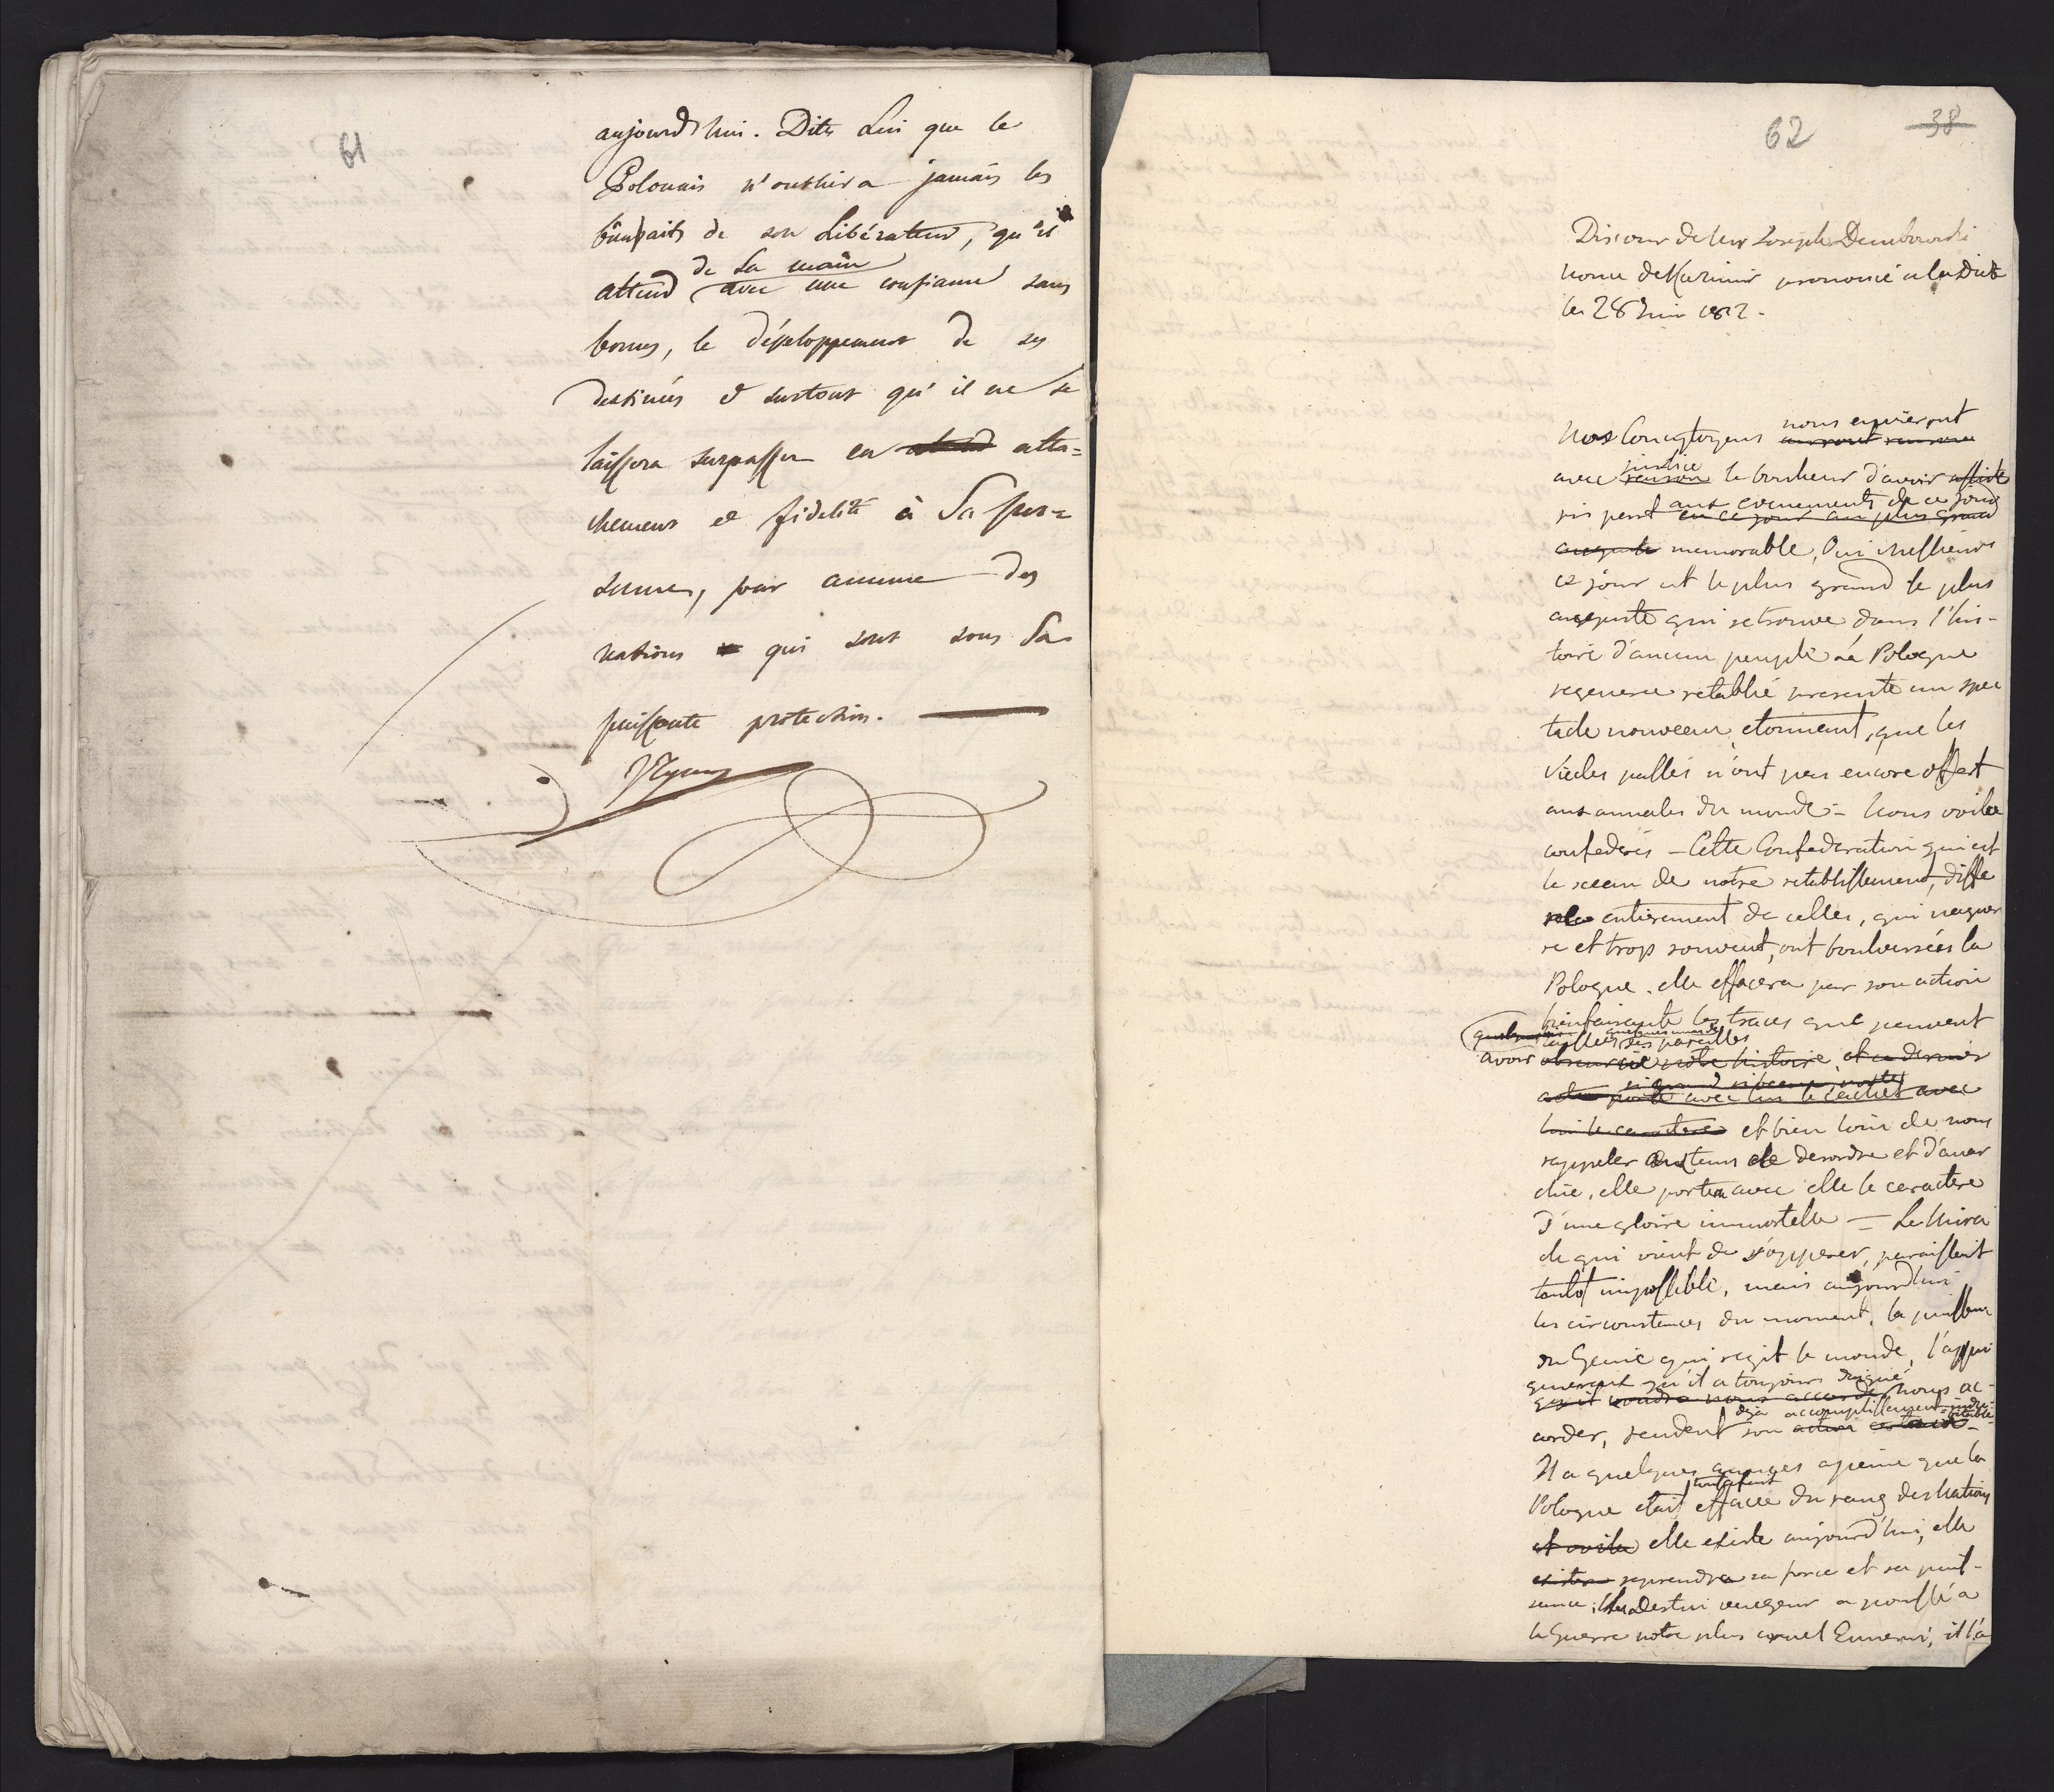 61
aujourd'hui. Dites Lui que le
Polonais n'oubliera jamais les
bienfaits de son Libérateur, qu'il
de Sa main
attend avec une confiance sans
bornes, le développement de ses
destinées et surtout qu'il ne se
laissera surpasser en atta=
chement et fidelité à Sa per=
sonne, par aucune des
nations qui sont sous Sa
puissante protection.
62 38
Discour de Mr Joseph Dembowski
nonce de pronomcé a la Diete
le 28 Juin 1812.
Nos Concytoyens nous envieront
avec justice raison le bonheur d'avoir assisté
aux evenements de ce jour
en ce jour au plus grand
auguste memorable, Oui Messieurs
ce jour est le plus grand le plus
auguste qui se trouve dans l'his-
toire d'aucun peuple La Pologne
regeneree retablie presente un spec
tacle nouveau, etonnant, que les
siecles passés n'ont pas encore offert
aux annales du monde - Nous voila
confederés - Cette Confederation qui est
le sceau de notre retablissement, diffe
rera entierement de celles, qui nague
re et trop souvent, ont boulversées la
Pologne. elle effacera par son action
bienfaisante les traces que peuvent
quelques unes des pareilles
avoir obscurcie notre histoire, et ce dernier
si grand si beau
acte porte avec lui le cachet avec
lui le caractere et bien loin de nous
rappeler aux tems de desordre et d'anar
chie, elle portera avec elle le caractere
d'une gloire immortelle = Le Mira
cle qui vient de s'opperer, paraissait
tantôt impossible, mais aujourd'hui
les circonstances du moment, la puissance
du Genie qui regit le monde, l'appui
genereux qu'il a toujours daigné
qu'il voudra nous accorder nous ac-
deja accomplissement indu-
bitable
corder, rendent son action certaine -
Il a quelques années a peine que la
toutafait
Pologne etait effacée du rang des Nations
et voila elle existe aujourd'hui, elle
existera reprendra sa force et sa puis-
sance, le Destin vengeur a poussé a
la Guerre notre plus cruel Ennemi, il l'a